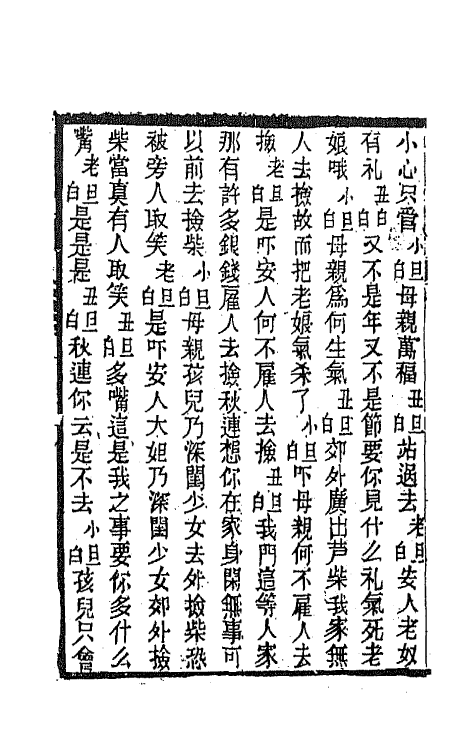 小心只管小旦白母親萬福丑旦白站過去老旦白安人老奴
有礼丑白又不是年又不是節要你見什么礼氣死老
娘哦小旦白母親爲何生氣丑旦白郊外廣出芦柴我家無
人去撿故而把老娘氣杀了小旦白吓母親何不雇人去
撿老旦白是吓安人何不雇人去撿丑旦白我門這等人家
那有許多銀錢雇人去撿秋連想你在家身閑無事可
以前去撿柴小旦白母親孩兒乃深閨少女去外撿柴恐
被旁人取笑老旦白是吓安人大姐乃深閨少女郊外撿
柴當真有人取笑丑旦白多嘴這是我之事要你多什么
嘴老旦白是是是丑旦白秋連你去是不去小旦白孩兒只會